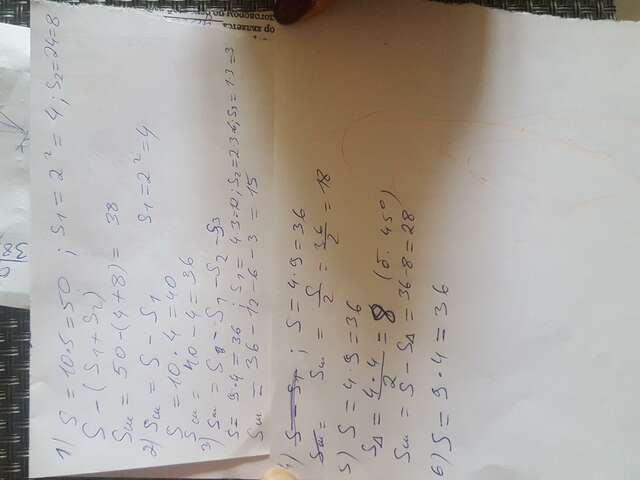 1) S = 10·5 = 50 ; S1 = 2² = 4 ; S2 = 2·4 = 8
S - (S1 + S2)
Sш = 50 - (4+8) = 38
2) Sш = S - S1 S1 = 2² = 4
S = 10·4 = 40
Sш = 40 - 4 = 36
3) Sш = S - S1 - S2 - S3
S = 9·4 = 36 ; S1 = 4·3 = 12 ; S2 = 2·3 = 6 ; S3 = 1·3 = 3
Sш = 36 - 12 - 6 - 3 = 15
4) S - S1 ; S = 4·9 = 36
Sш = Sш = S/2 = 36/2 = 18
5) S = 4·9 = 36
S∆ = 4·4/2 = 8 (б. 45°)
Sш = S - S∆ = 36 - 8 = 28
6) S = 9·4 = 36